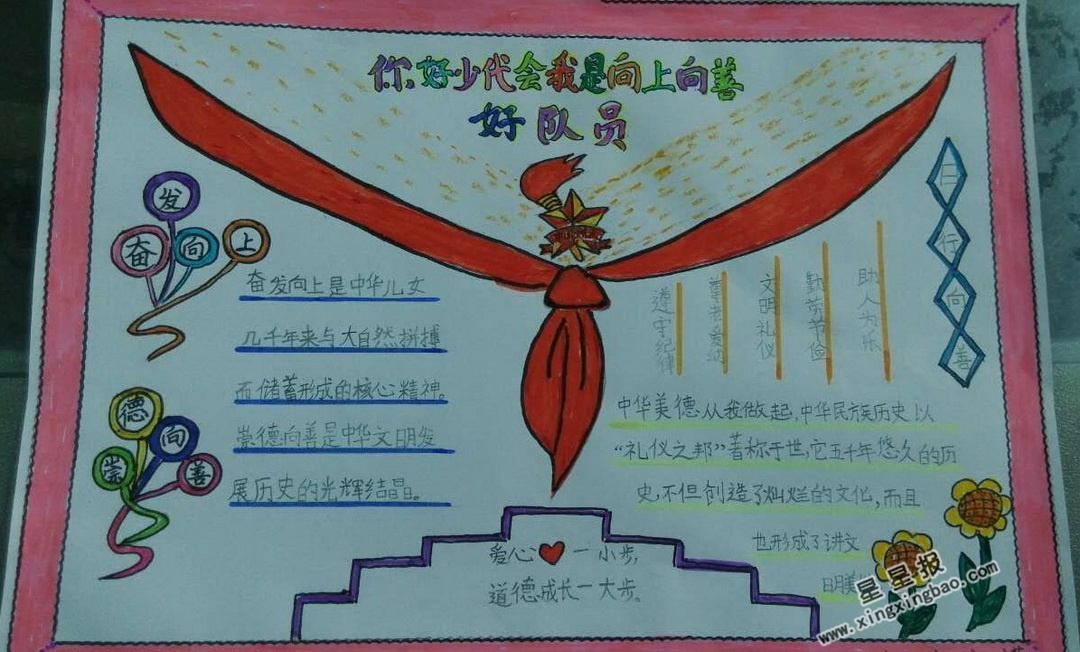 你好少代会我是向上向善
好队员
奋发向上
奋发向上是中华儿女
几千年来与大自然拼搏
而储蓄形成的核心精神。
崇德向善是中华文明发
展历史的光辉结晶。
崇德向善
遵守纪律
尊老爱幼
文明礼仪
勤劳节俭
助人为乐
日行向善
中华美德从我做起，中华民族历史以
“礼仪之邦”著称于世，它五千年悠久的历
史，不但创造了灿烂的文化，而且
也形成了讲文
明美
爱心一小步，
道德成长一大步。
星星报
www.xingxingbao.com